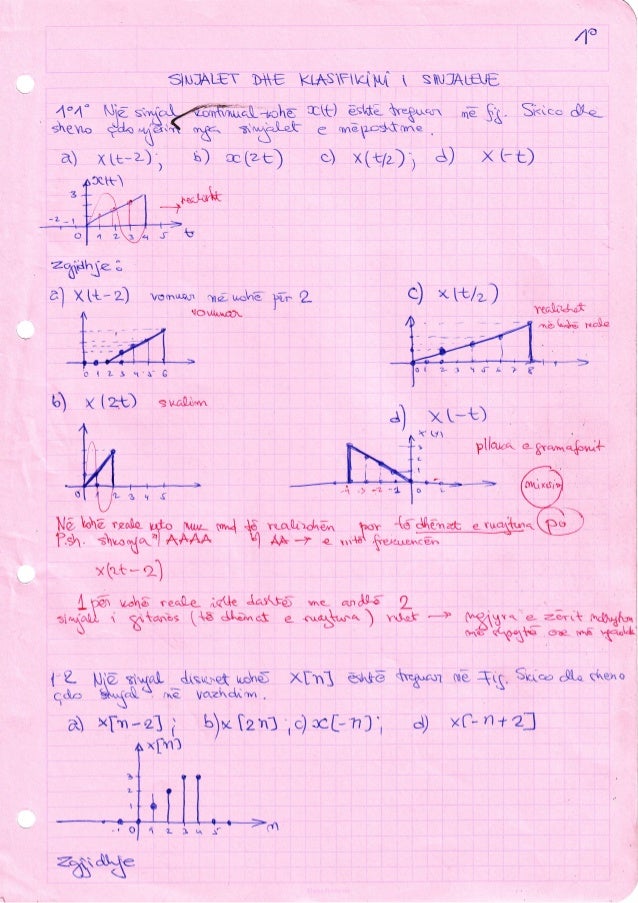 1°
SINJALET DHE KLASIFIKIMI I SINJALEVE
1°1° Një sinjal kontinual kohë x(t) është treguar në fig. Skico dhe
sheno çdo njërin nga sinjalet e mëposhtme.
a) x(t-2); b) x(2t) c) x(t/2); d) x(-t)
x(t)
3
-2 -1
0 1 2 3 4 5 t
Zgjidhje:
a) x(t-2) vonuar në kohë për 2
vonuar
c) x(t/2)
realizohet
në kohë reale
0 1 2 3 4 5 6
0 1 2 3 4 5 6 7 8
b) x(2t) skalim
d) x(-t)
pllaka e gramafonit
0 1 2 3 4 5
3
2
1
-4 -3 -2 -1 0 2
Në kohë reale kyto nuk mnd të realizohën por të dhënat e ruajtura po
P.sh. AAAA b) AA → e rritë frekuencën
x(2t-2)
1 për kohë reale është dashtë me ardhë 2
sinjali i gitarës (të dhënat e ruajtura) rritet → ngjyra e zërit
më shpejtë ose më
1-2 Një sinjal diskret kohë x[n] është treguar në Fig. Skico dhe sheno
çdo sinjal në vazhdim.
a) x[n-2]; b) x[2n]; c) x[-n]; d) x[-n+2]
x[n]
3
2
1
-1 0 1 2 3 4 5 n
Zgjidhje